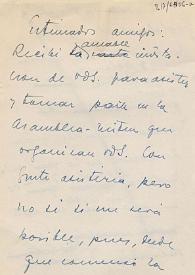 Estimados amigos:
Recibí la amable invita-
cion de vds. para asistir
y tomar parte en la
Asamblea-mitin que
organizan vds. Con
gusto asistiría, pero
no sé si me será
posible, pues, desde
que comenzó la